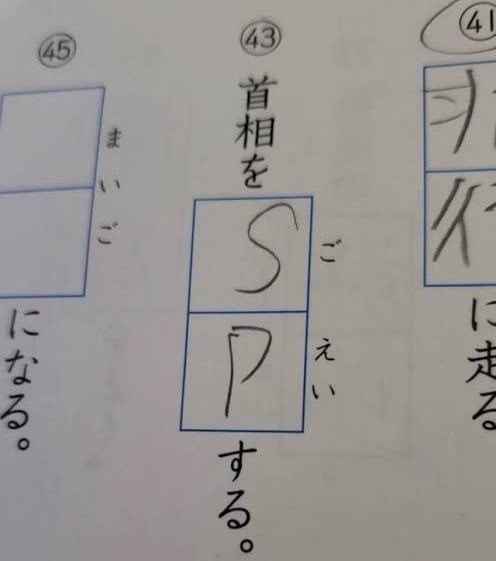 ㊶
に走る
㊸
首相をSPする。
ごえい
㊺
まいご
になる。